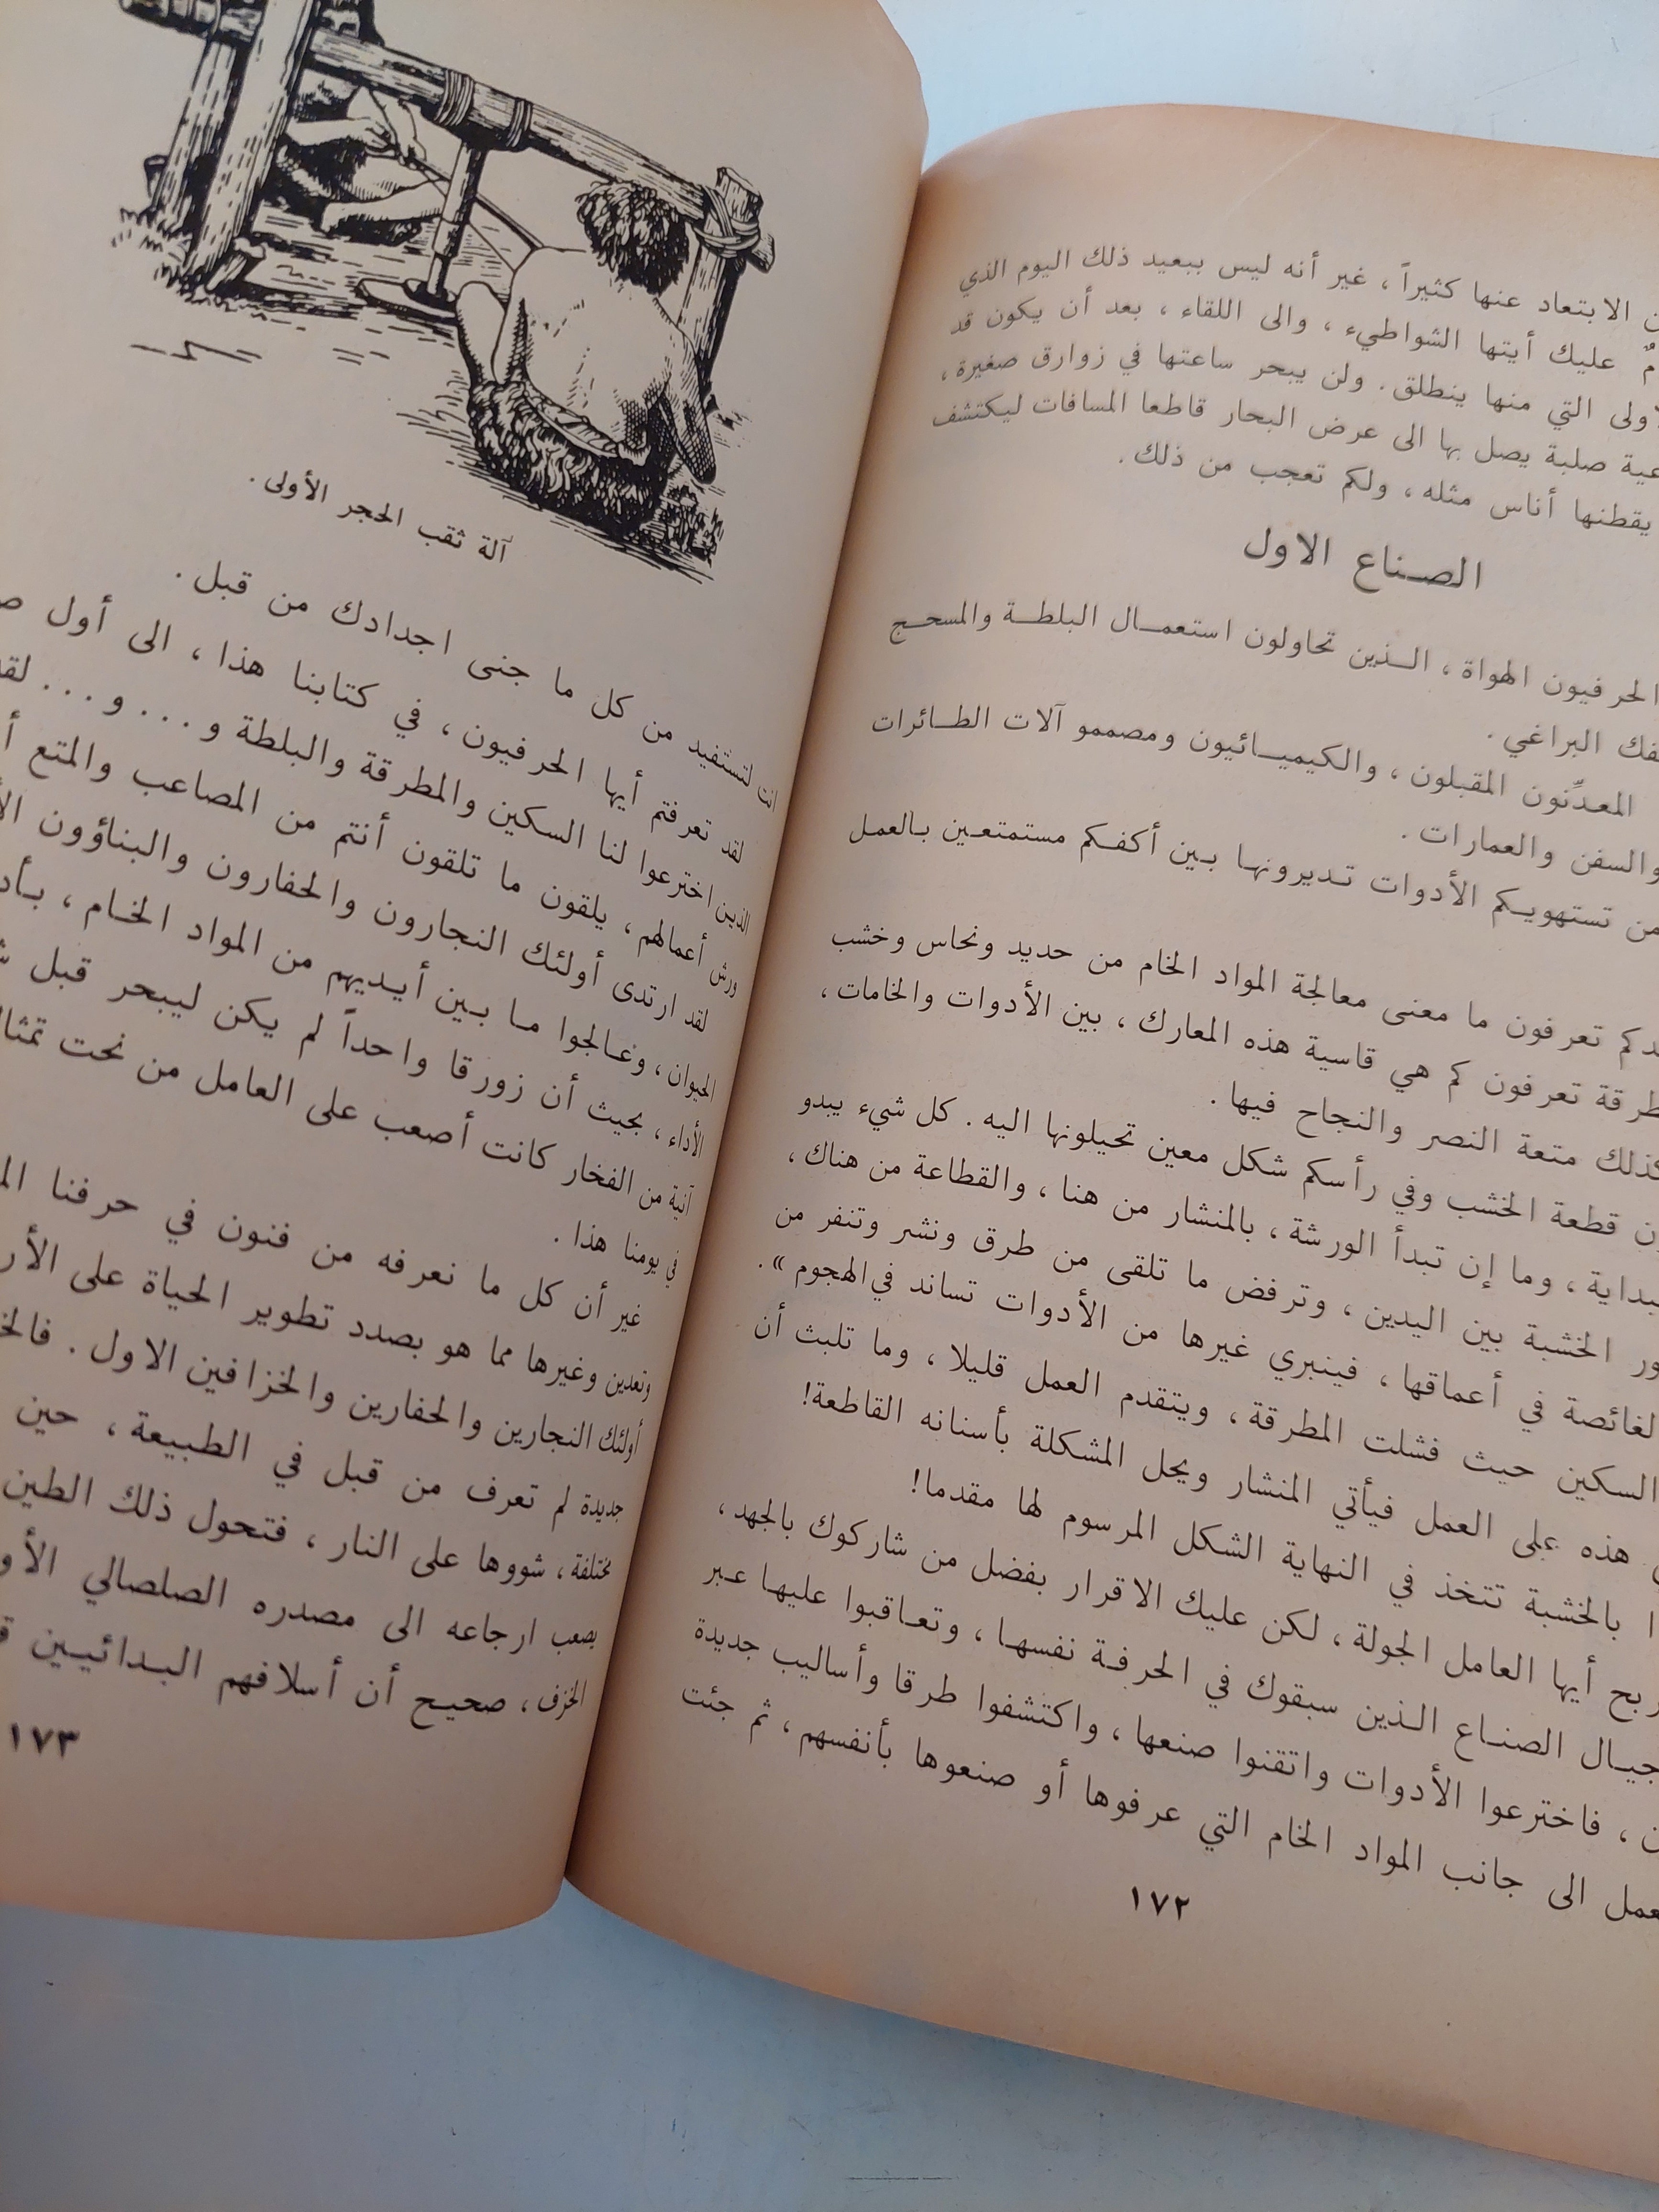 الابتعاد عنها كثيراً ، غير أنه ليس ببعيد ذلك اليوم الذي
عليك أيتها الشواطيء ، والى اللقاء ، بعد أن يكون قد
التي منها ينطلق . ولن يبحر ساعتها في زوارق صغيرة ،
صلبة يصل بها الى عرض البحار قاطعا المسافات ليكتشف
يقطنها أناس مثله ، ولكم تعجب من ذلك .
الصناع الاول
الحرفيون الهواة ، الذين تحاولون استعمال البلطة والمسحج
البراغي .
المعدِّنون المقبلون ، والكيميائيون ومصممو آلات الطائرات
والسفن والعمارات .
من تستهويكم الأدوات تديرونها بين أكفكم مستمتعين بالعمل
تعرفون ما معنى معالجة المواد الخام من حديد ونحاس وخشب
تعرفون كم هي قاسية هذه المعارك ، بين الأدوات والخامات ،
كذلك متعة النصر والنجاح فيها .
قطعة الخشب وفي رأسكم شكل معين تحيلونها اليه . كل شيء يبدو
وما إن تبدأ الورشة ، بالمنشار من هنا ، والقطاعة من هناك ،
الخشبة بين اليدين ، وترفض ما تلقى من طرق ونشر وتنفر من
في أعماقها ، فينبري غيرها من الأدوات تساند في الهجوم » .
السكين حيث فشلت المطرقة ، ويتقدم العمل قليلا ، وما تلبث أن
هذه على العمل فيأتي المنشار ويحل المشكلة بأسنانه القاطعة!
بالخشبة تتخذ في النهاية الشكل المرسوم لها مقدما!
أيها العامل الجولة ، لكن عليك الاقرار بفضل من شاركوك بالجهد ،
الصناع الذين سبقوك في الحرفة نفسها ، وتعاقبوا عليها عبر
، فاخترعوا الأدوات واتقنوا صنعها ، واكتشفوا طرقا وأساليب جديدة
الى جانب المواد الخام التي عرفوها أو صنعوها بأنفسهم ، ثم جئت
١٧٢
آلة ثقب الحجر الأولى .
انت لتستفيد من كل ما جنى اجدادك من قبل .
لقد تعرفتم أيها الحرفيون ، في كتابنا هذا ، الى أول
الذين اخترعوا لنا السكين والمطرقة والبلطة و . . . و . . .
ورش أعمالهم ، يلقون ما تلقون أنتم من المصاعب والمتع
لقد ارتدى أولئك النجارون والحفارون والبناؤون
الحيوان ، وعالجوا ما بين أيديهم من المواد الخام ،
الأداء ، بحيث أن زورقا واحداً لم يكن ليبحر قبل
آنية من الفخار كانت أصعب على العامل من نحت
في يومنا هذا .
غير أن كل ما نعرفه من فنون في حرفنا
وتعدين وغيرها مما هو بصدد تطوير الحياة على
أولئك النجارين والحفارين والخزافين الاول .
جديدة لم تعرف من قبل في الطبيعة ، حين
مختلفة ، شووها على النار ، فتحول ذلك الطين
يصعب ارجاعه الى مصدره الصلصالي
الخزف ، صحيح أن أسلافهم البدائيين
١٧٣